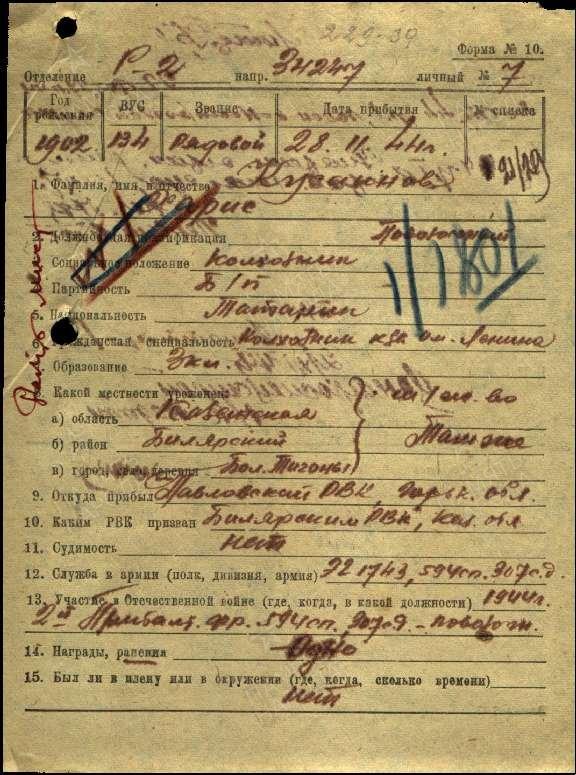 229-39
Форма № 10.
Отделение Р-2 напр. 34247 личный № 7
Год рождения ВУС Звание Дата прибытия № списка
1902 134 Рядовой 28. 11. 44 г. 21/29
1. Фамилия, имя и отчество
2. Должностная квалификация
Социальное положение Колхозник
Партийность Б/п
11801
5. Национальность Татарин
6. Гражданская специальность Колхозник к-з им. Ленина
Образование 3 кл.
8. Какой местности уроженец:
а) область Казанская
б) район Билярский
в) город, село, деревня Бол. Тиганы
Там же
9. Откуда прибыл Павловский РВК, Горьк. обл.
10. Каким РВК призван Билярским РВК, Каз. обл
11. Судимость нет
12. Служба в армии (полк, дивизия, армия) 594 сп. 207 с.д.
13. Участие в Отечественной войне (где, когда, в какой должности) 1944 г.
2й Прибалт. фр. 594 сп. 207 сд.
14. Награды, ранения Одно
15. Был ли в плену или в окружении (где, когда, сколько времени)
нет